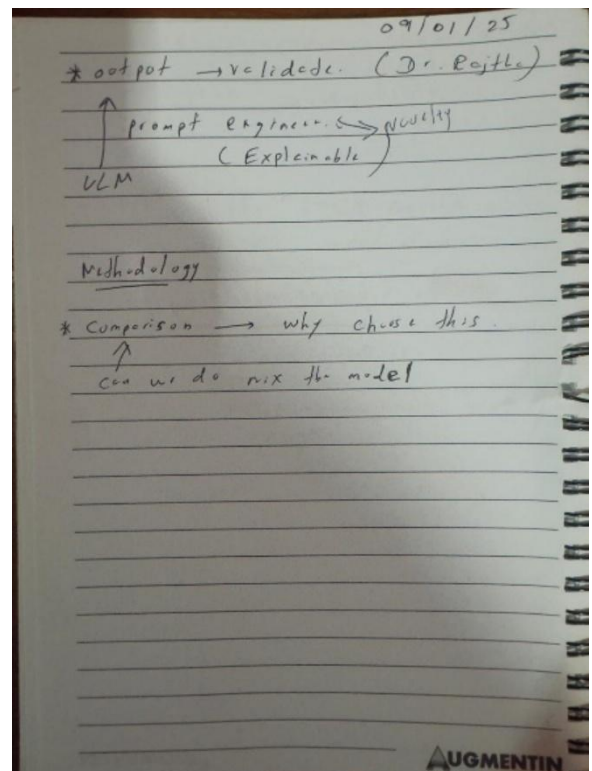 09/01/25
* output → validate. (Dr. Rajtha)
prompt engineer ↔ Novelty
(Explainable)
VLM
Methodology
* Comparison → why choose this.
can we do mix the model
AUGMENTIN